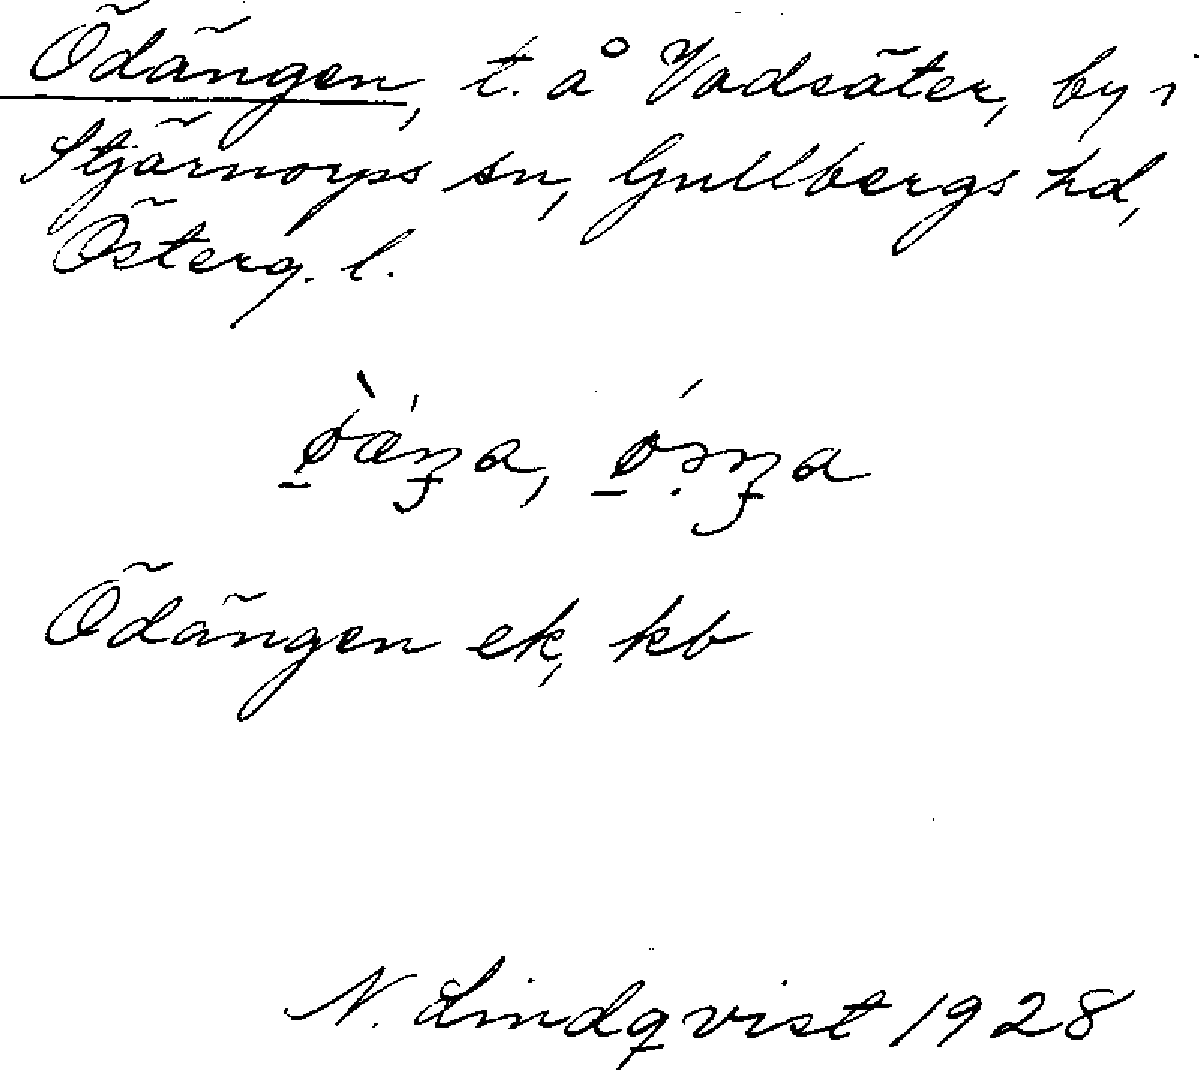 Ödängen, t. å Vadsäter, by i
Stjärnorps sn, Gullbergs hd,
Österg. l.
Ödängen ek, kb
N. Lindqvist 1928